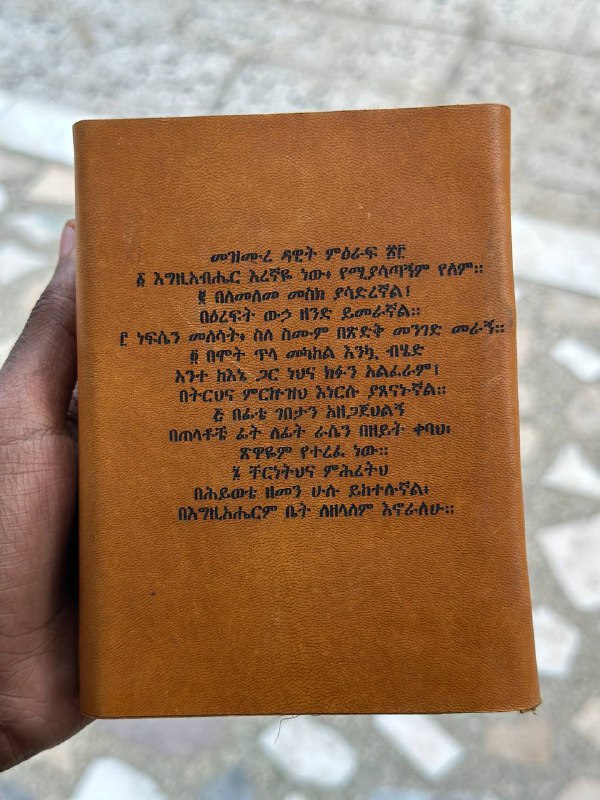 መዝሙረ ዳዊት ምዕራፍ ፳፫
፩ እግዚአብሔር እረኛዬ ነው፥ የሚያሳጣኝም የለም።
፪ በለመለመ መስክ ያሳድረኛል፤
በዕረፍት ውኃ ዘንድ ይመራኛል።
፫ ነፍሴን መለሳት፥ ስለ ስሙም በጽድቅ መንገድ መራኝ።
፬ በሞት ጥላ መካከል እንኳ ብሄድ
አንተ ከእኔ ጋር ነህና ክፉን አልፈራም፤
በትርህና ምርኩዝህ እነርሱ ያጸናኑኛል።
፭ በፊቴ ገበታን አዘጋጀህልኝ
በጠላቶቼ ፊት ለፊት ራሴን በዘይት ቀባህ፥
ጽዋዬም የተረፈ ነው።
፮ ቸርነትህና ምሕረትህ
በሕይወቴ ዘመን ሁሉ ይከተሉኛል፥
በእግዚአሔርም ቤት ለዘላለም እኖራለሁ።